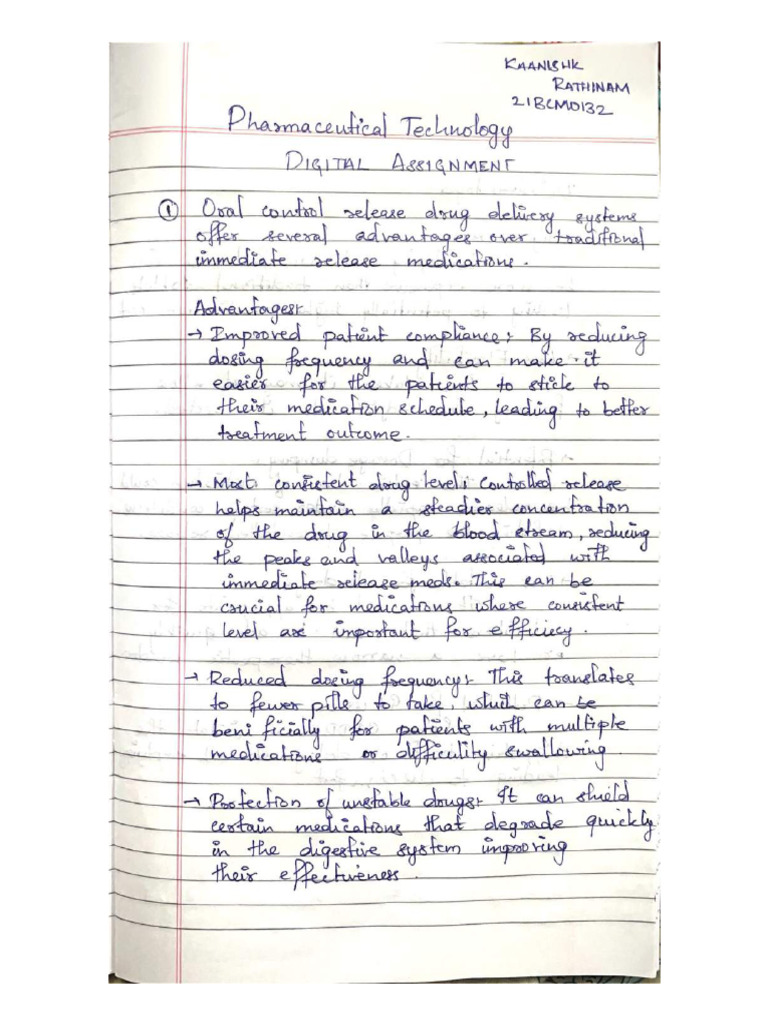 KAANISHK
RATHINAM
21BCM0132
Pharmaceutical Technology
DIGITAL ASSIGNMENT
① Oral control release drug delivery systems
offer several advantages over traditional
immediate release medications.
Advantages:
→ Improved patient compliance: By reducing
dosing frequency and can make it
easier for the patients to stick to
their medication schedule, leading to better
treatment outcome.
→ Most consistent drug level: Controlled release
helps maintain a steadier concentration
of the drug in the blood stream, reducing
the peaks and valleys associated with
immediate release meds. This can be
crucial for medications where consistent
level are important for efficiecy.
→ Reduced dosing frequency: This translates
to fewer pills to take, which can be
beni ficially for patients with multiple
medications or difficulity swallowing.
→ Protection of unstable drugs: It can shield
certain medications that degrade quickly
in the digestive system improving
their effectiveness.